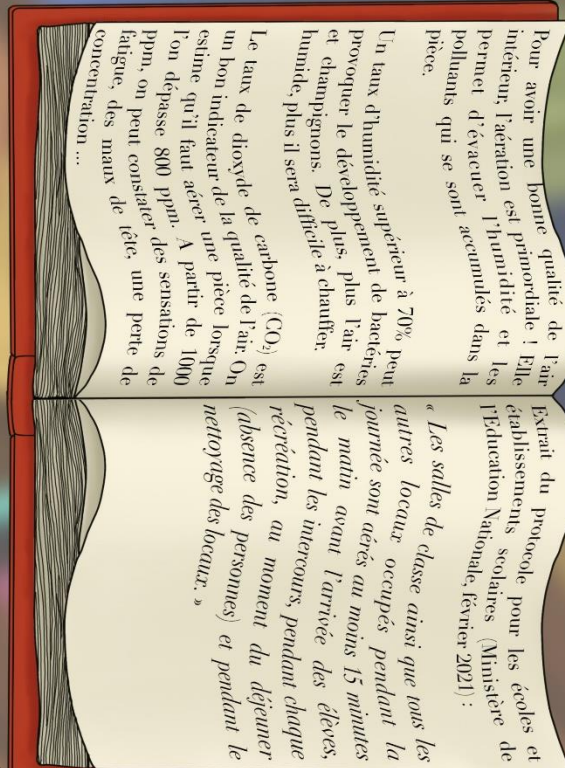 Pour avoir une bonne qualité de l'air
intérieur, l'aération est primordiale ! Elle
permet d'évacuer l'humidité et les
polluants qui se sont accumulés dans la
pièce.
Un taux d'humidité supérieur à 70% peut
provoquer le développement de bactéries
et champignons. De plus, plus l'air est
humide, plus il sera difficile à chauffer.
Le taux de dioxyde de carbone (CO₂) est
un bon indicateur de la qualité de l'air. On
estime qu'il faut aérer une pièce lorsque
l'on dépasse 800 ppm. A partir de 1000
ppm, on peut constater des sensations de
fatigue, des maux de tête, une perte de
concentration ...
Extrait du protocole pour les écoles et
établissements scolaires (Ministère de
l'Education Nationale, février 2021) :
« Les salles de classe ainsi que tous les
autres locaux occupés pendant la
journée sont aérés au moins 15 minutes
le matin avant l'arrivée des élèves,
pendant les intercours, pendant chaque
récréation, au moment du déjeuner
(absence des personnes) et pendant le
nettoyage des locaux. »